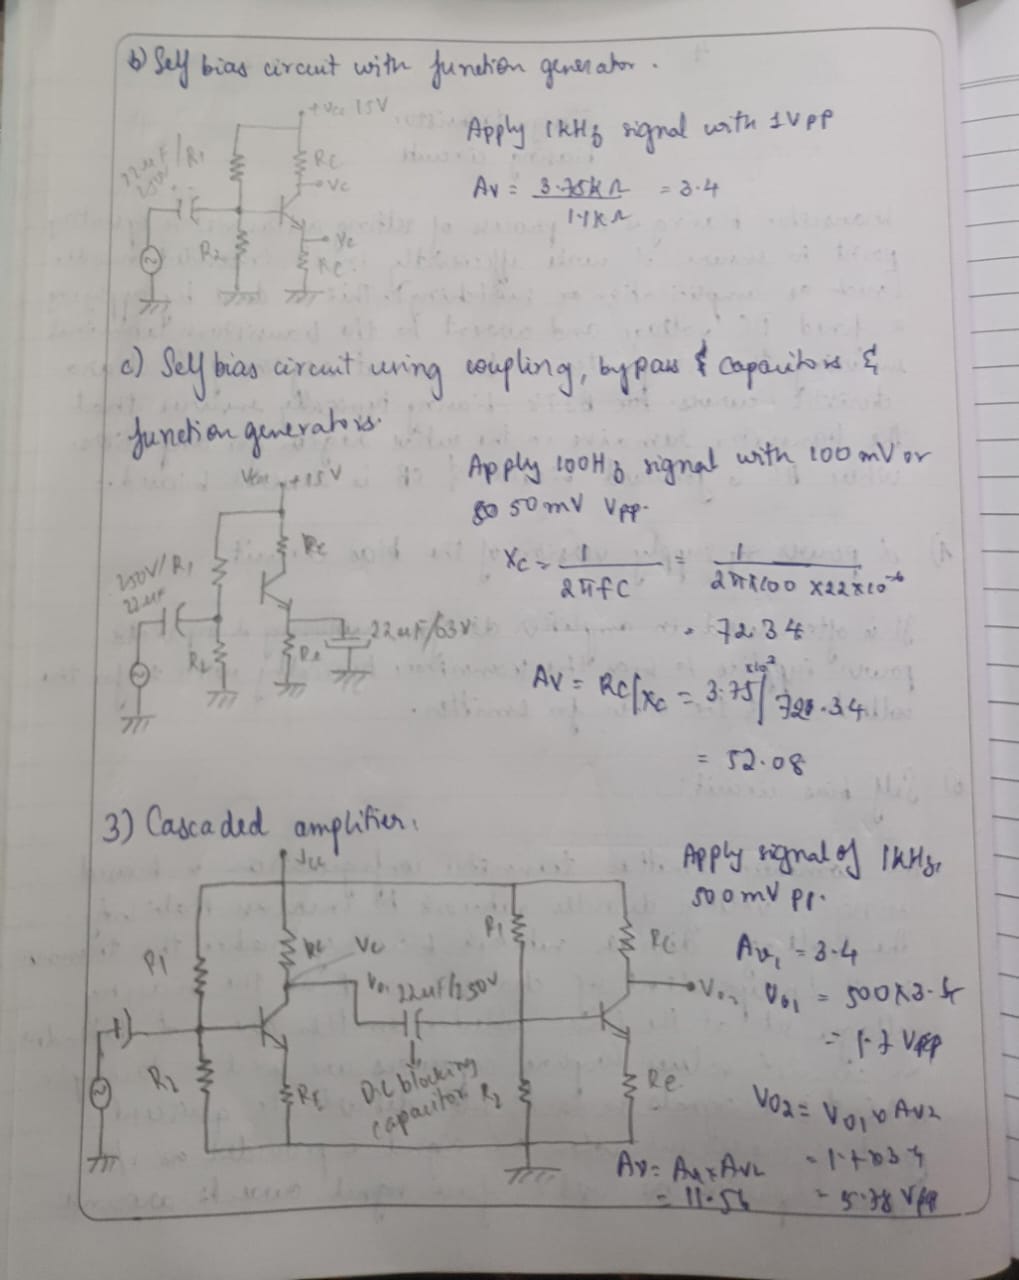 b) Self bias circuit with function generator.
+Vcc 15V
22uF/
250V
R1
RC
Vc
R2
Ve
Re
Apply 1KHz signal with 1Vpp
Av = 3.75KΩ = 3.4
1.1KΩ
c) Self bias circuit using coupling, bypass & capacitors &
function generators.
+15V
250V/
22uF
R1
Rc
R2
Re
22uF/63V
Apply 100Hz signal with 100mV or
50mV Vpp.
Xc = 1 = 1
2πfC 2π×100 ×22×10⁻⁶
= 72.34
Av = RC/Xc = 3.75×10² / 72.34
= 52.08
3) Cascaded amplifier.
Vcc
R1
Rc
Vc
Vo1
22uF/250V
R1
RC
Vo2
R2
RE
D.C blocking
capacitor
R2
Re
Apply signal of 1kHz,
500mV PP.
Av1 = 3.4
Vo1 = 500×3.4
= 1.7 Vpp
VO2 = Vo1 × Av2
= 1.7×3.4
= 5.78 Vpp
Av = Av1 × Av2
= 11.56